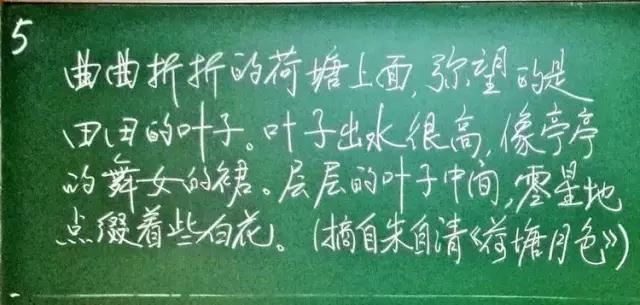 5
曲曲折折的荷塘上面,弥望的是
田田的叶子。叶子出水很高,像亭亭
的舞女的裙。层层的叶子中间,零星地
点缀着些白花。(摘自朱自清《荷塘月色》)